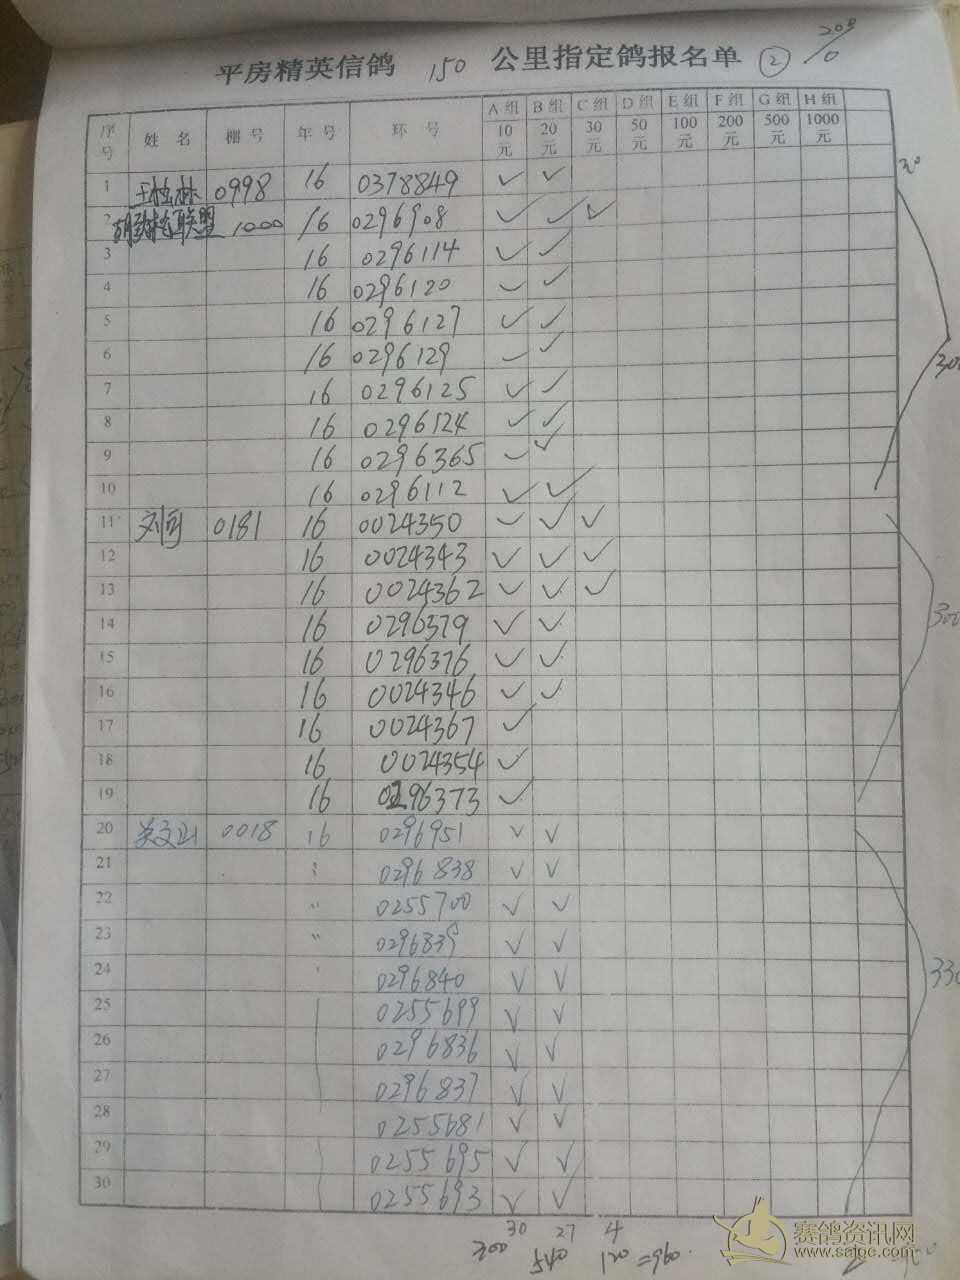 208/0
平房精英信鸽 150 公里指定鸽报名单 ②
序号 姓 名 棚 号 年 号 环 号 A组 10元 B组 20元 C组 30元 D组 50元 E组 100元 F组 200元 G组 500元 H组 1000元
1 王松林 0998 16 0378849 ✓ ✓
2 联盟 1000 16 0296908 ✓ ✓ ✓
3 16 0296114 ✓ ✓
4 16 0296120 ✓ ✓
5 16 0296127 ✓ ✓
6 16 0296129 ✓ ✓
7 16 0296125 ✓ ✓
8 16 0296124 ✓ ✓
9 16 0296365 ✓ ✓
10 16 0296112 ✓ ✓
300
11 刘 0181 16 0024350 ✓ ✓ ✓
12 16 0024343 ✓ ✓ ✓
13 16 0024362 ✓ ✓ ✓
14 16 0296379 ✓ ✓
15 16 0296376 ✓ ✓
16 16 0024346 ✓ ✓
17 16 0024367 ✓
18 16 0024354 ✓
19 16 0296373 ✓
300
20 0018 16 0296951 ✓ ✓
21 〃 0296838 ✓ ✓
22 〃 0255700 ✓ ✓
23 〃 0296839 ✓ ✓
24 0296840 ✓ ✓
25 0255699 ✓ ✓
26 0296836 ✓ ✓
27 0296837 ✓ ✓
28 0255681 ✓ ✓
29 0255695 ✓ ✓
30 0255693 ✓ ✓
330
30 27 4
300 540 120=960
赛鸽资讯网
www.saigc.com